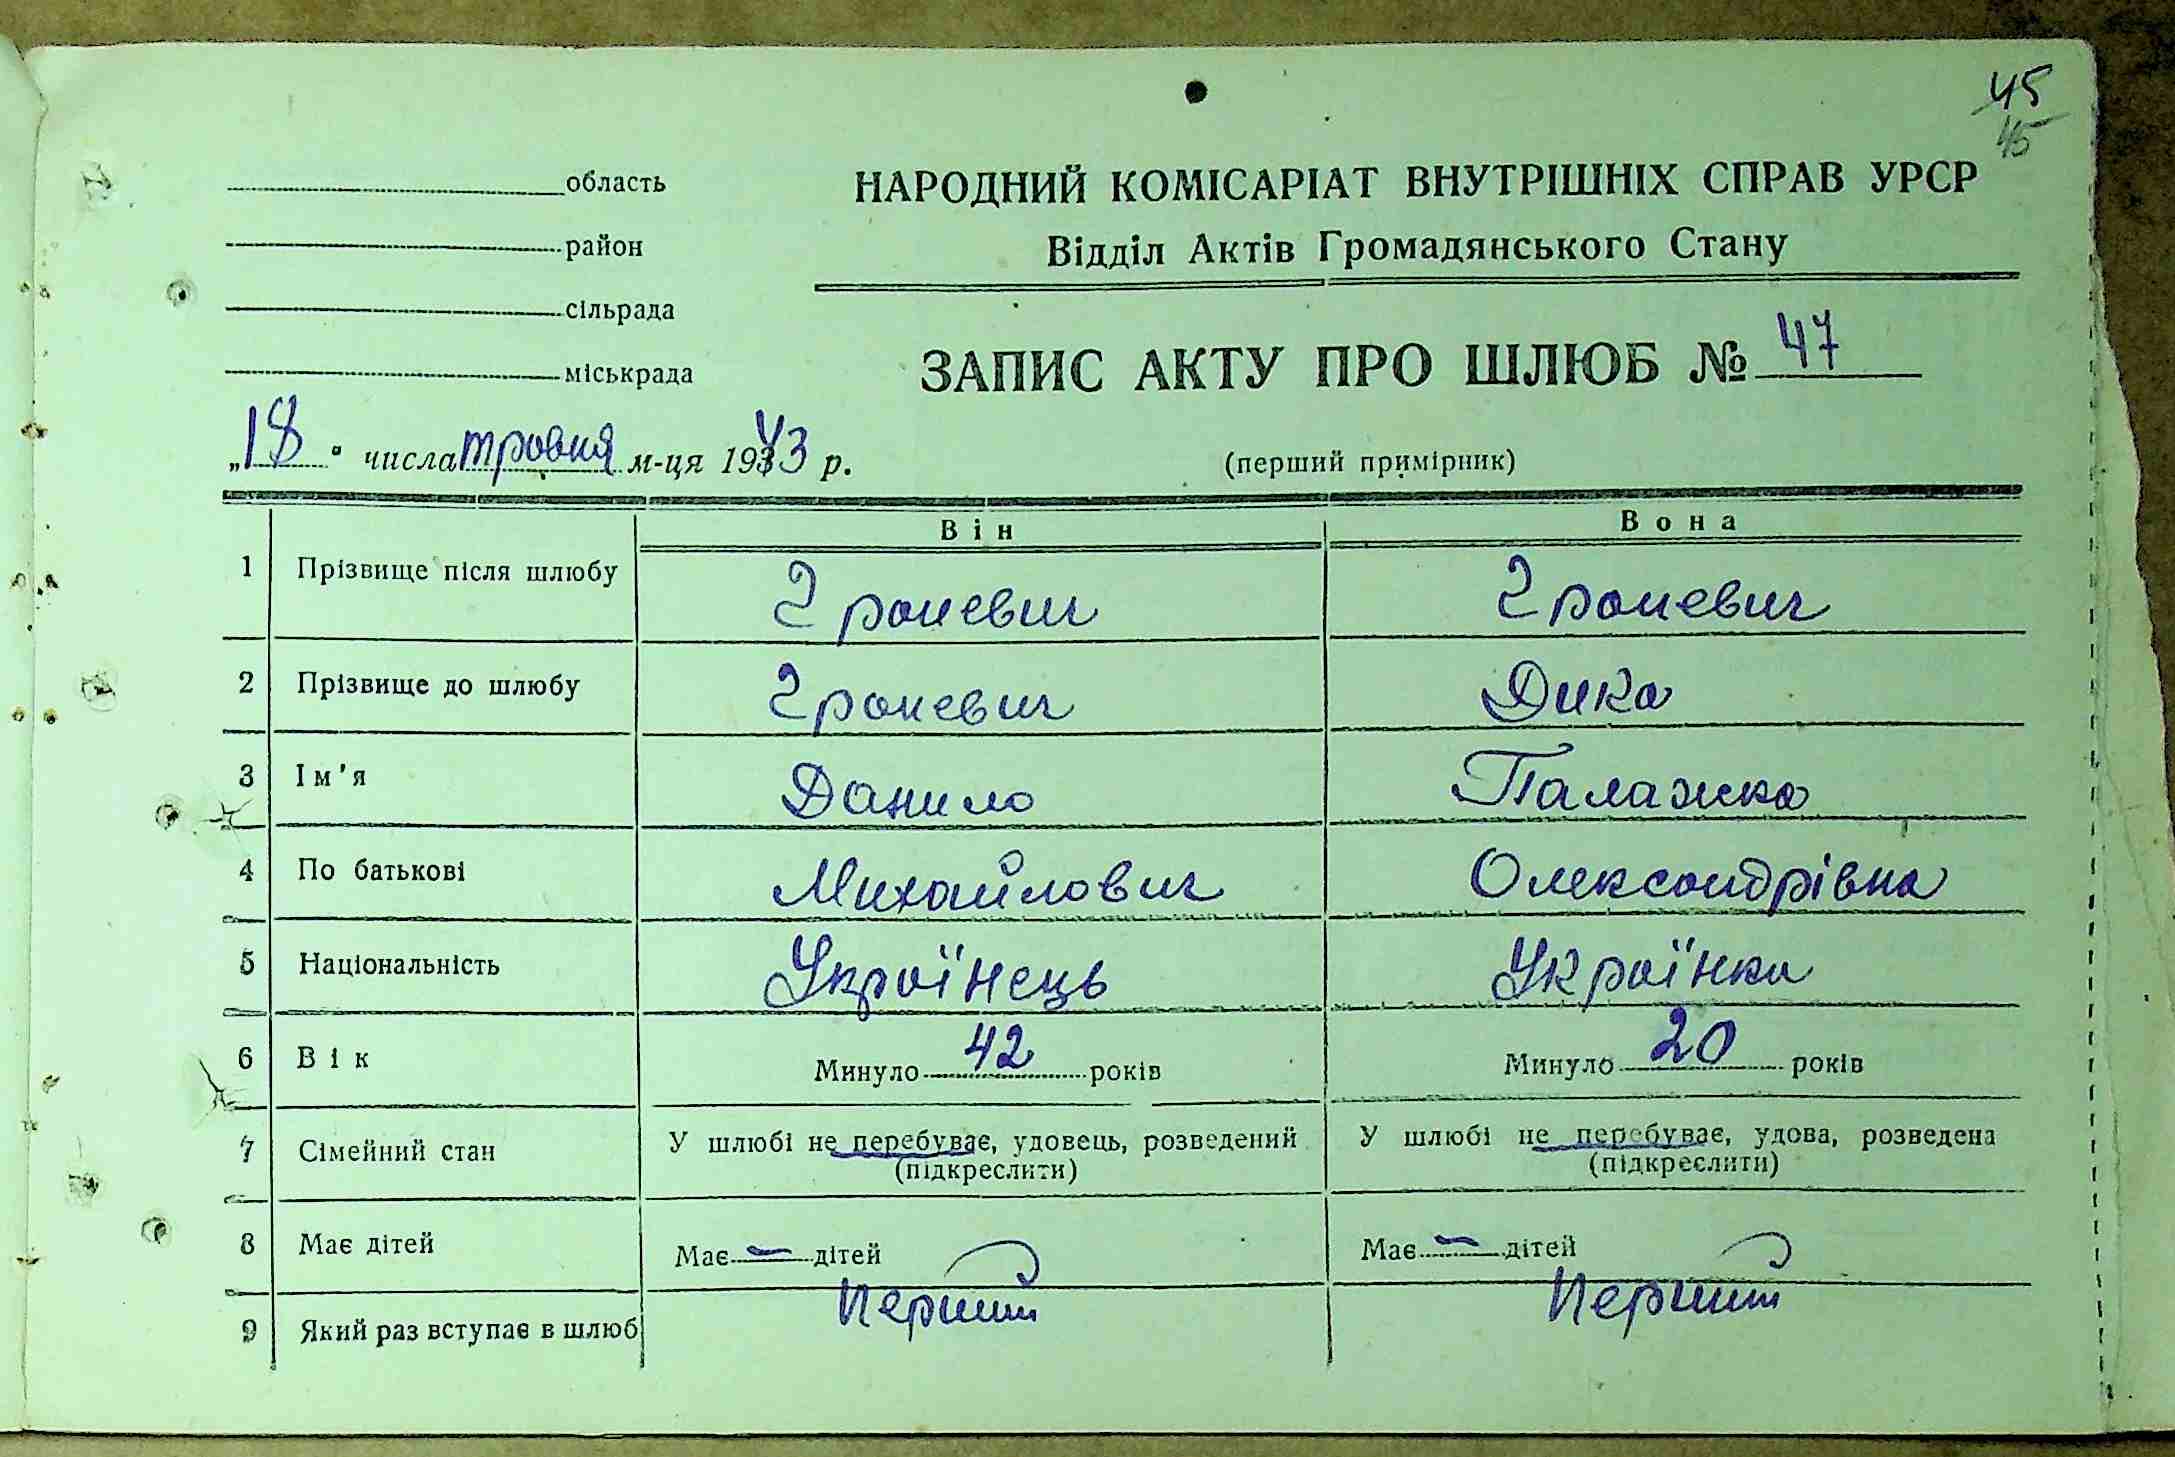 45
45
область
район
сільрада
міськрада
НАРОДНИЙ КОМІСАРІАТ ВНУТРІШНІХ СПРАВ УРСР
Відділ Актів Громадянського Стану
ЗАПИС АКТУ ПРО ШЛЮБ № 47
„18" числа травня м-ця 1943 р.
(перший примірник)
Він Вона
1 Прізвище після шлюбу Граневич Граневич
2 Прізвище до шлюбу Граневич Дика
3 Ім'я Данило Палажка
4 По батькові Михайлович Олександрівна
5 Національність Українець Українка
6 Вік Минуло 42 років Минуло 20 років
7 Сімейний стан У шлюбі не перебуває, удовець, розведений У шлюбі не перебуває, удова, розведена
(підкреслити) (підкреслити)
8 Має дітей Має — дітей Має — дітей
9 Який раз вступає в шлюб Перший Перший